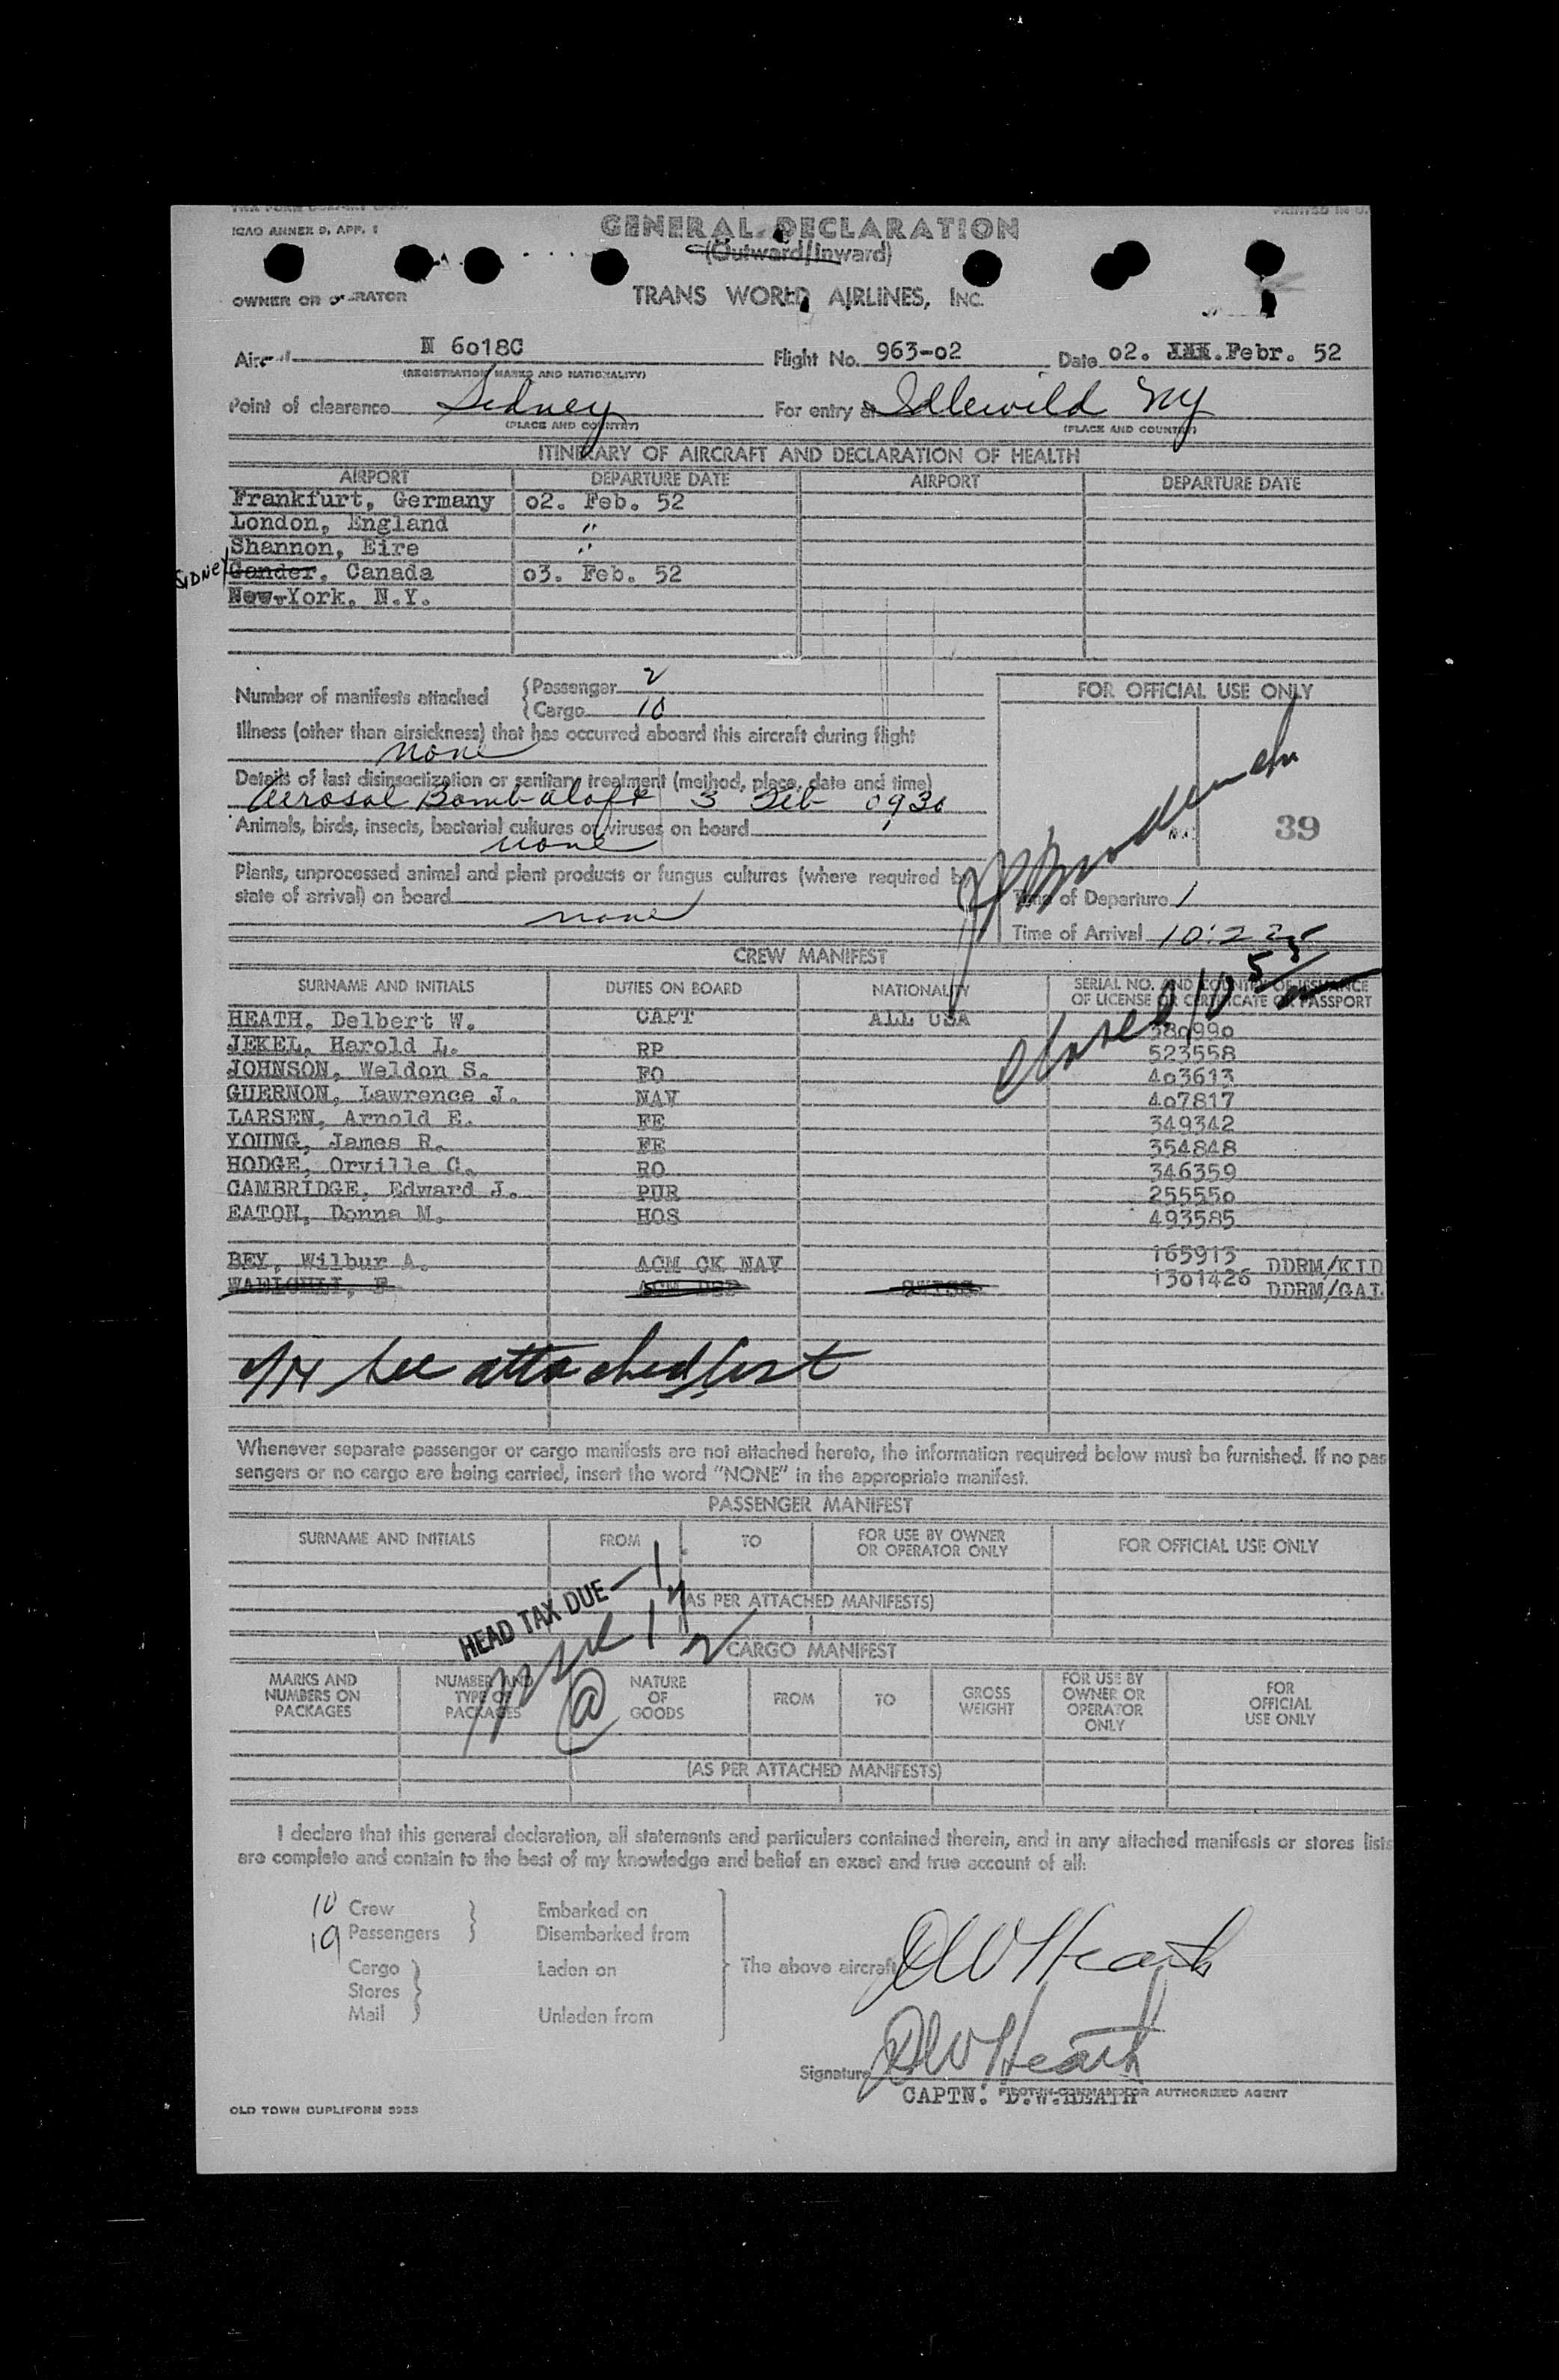 ICAO ANNEX 9, APP. 1
GENERAL DECLARATION
(Outward/Inward)
OWNER OR OPERATOR
TRANS WORLD AIRLINES, INC.
N 6018C
Flight No. 963-02
Date 02. JAN. Febr. 52
(REGISTRATION MARKS AND NATIONALITY)
Point of clearance Sidney
For entry at Idlewild NY
(PLACE AND COUNTRY)
(PLACE AND COUNTRY)
ITINERARY OF AIRCRAFT AND DECLARATION OF HEALTH
AIRPORT DEPARTURE DATE AIRPORT DEPARTURE DATE
Frankfurt, Germany 02. Feb. 52
London, England "
Shannon, Eire "
SIDNEY Gander, Canada 03. Feb. 52
New York, N.Y.
Number of manifests attached
Passenger 2
Cargo 10
FOR OFFICIAL USE ONLY
Illness (other than airsickness) that has occurred aboard this aircraft during flight
none
Details of last disinsectization or sanitary treatment (method, place, date and time)
Aerosol Bomb aloft 3 Feb 0930
Animals, birds, insects, bacterial cultures or viruses on board
none
39
Plants, unprocessed animal and plant products or fungus cultures (where required by
state of arrival) on board
none
Time of Departure
Time of Arrival 10:22
CREW MANIFEST
SURNAME AND INITIALS DUTIES ON BOARD NATIONALITY SERIAL NO. AND COUNTRY OF ISSUANCE
OF LICENSE OR CERTIFICATE OR PASSPORT
HEATH, Delbert W. CAPT ALL USA 380990
JEKEL, Harold L. RP 523558
JOHNSON, Weldon S. FO 403613
GUERNON, Lawrence J. NAV 407817
LARSEN, Arnold E. FE 349342
YOUNG, James R. FE 354848
HODGE, Orville C. RO 346359
CAMBRIDGE, Edward J. PUR 255550
EATON, Donna M. HOS 493585
BEY, Wilbur A. ACM CK NAV 165913 DDRM/KID
WAELCHLI, F ACM DSP SWISS 1301426 DDRM/GAL
see attached list
Whenever separate passenger or cargo manifests are not attached hereto, the information required below must be furnished. If no pas
sengers or no cargo are being carried, insert the word "NONE" in the appropriate manifest.
PASSENGER MANIFEST
SURNAME AND INITIALS FROM TO FOR USE BY OWNER
OR OPERATOR ONLY FOR OFFICIAL USE ONLY
HEAD TAX DUE
(AS PER ATTACHED MANIFESTS)
CARGO MANIFEST
MARKS AND
NUMBERS ON
PACKAGES
NUMBER AND
TYPE OF
PACKAGES
NATURE
OF
GOODS
FROM
TO
GROSS
WEIGHT
FOR USE BY
OWNER OR
OPERATOR
ONLY
FOR
OFFICIAL
USE ONLY
(AS PER ATTACHED MANIFESTS)
I declare that this general declaration, all statements and particulars contained therein, and in any attached manifests or stores lists
are complete and contain to the best of my knowledge and belief an exact and true account of all:
10 Crew
19 Passengers
Embarked on
Disembarked from
Cargo
Stores
Mail
Laden on
Unladen from
The above aircraft
DW Heath
Signature DW Heath
PILOT-IN-COMMAND OR AUTHORIZED AGENT
CAPTN. D.W.HEATH
OLD TOWN DUPLIFORM 5953